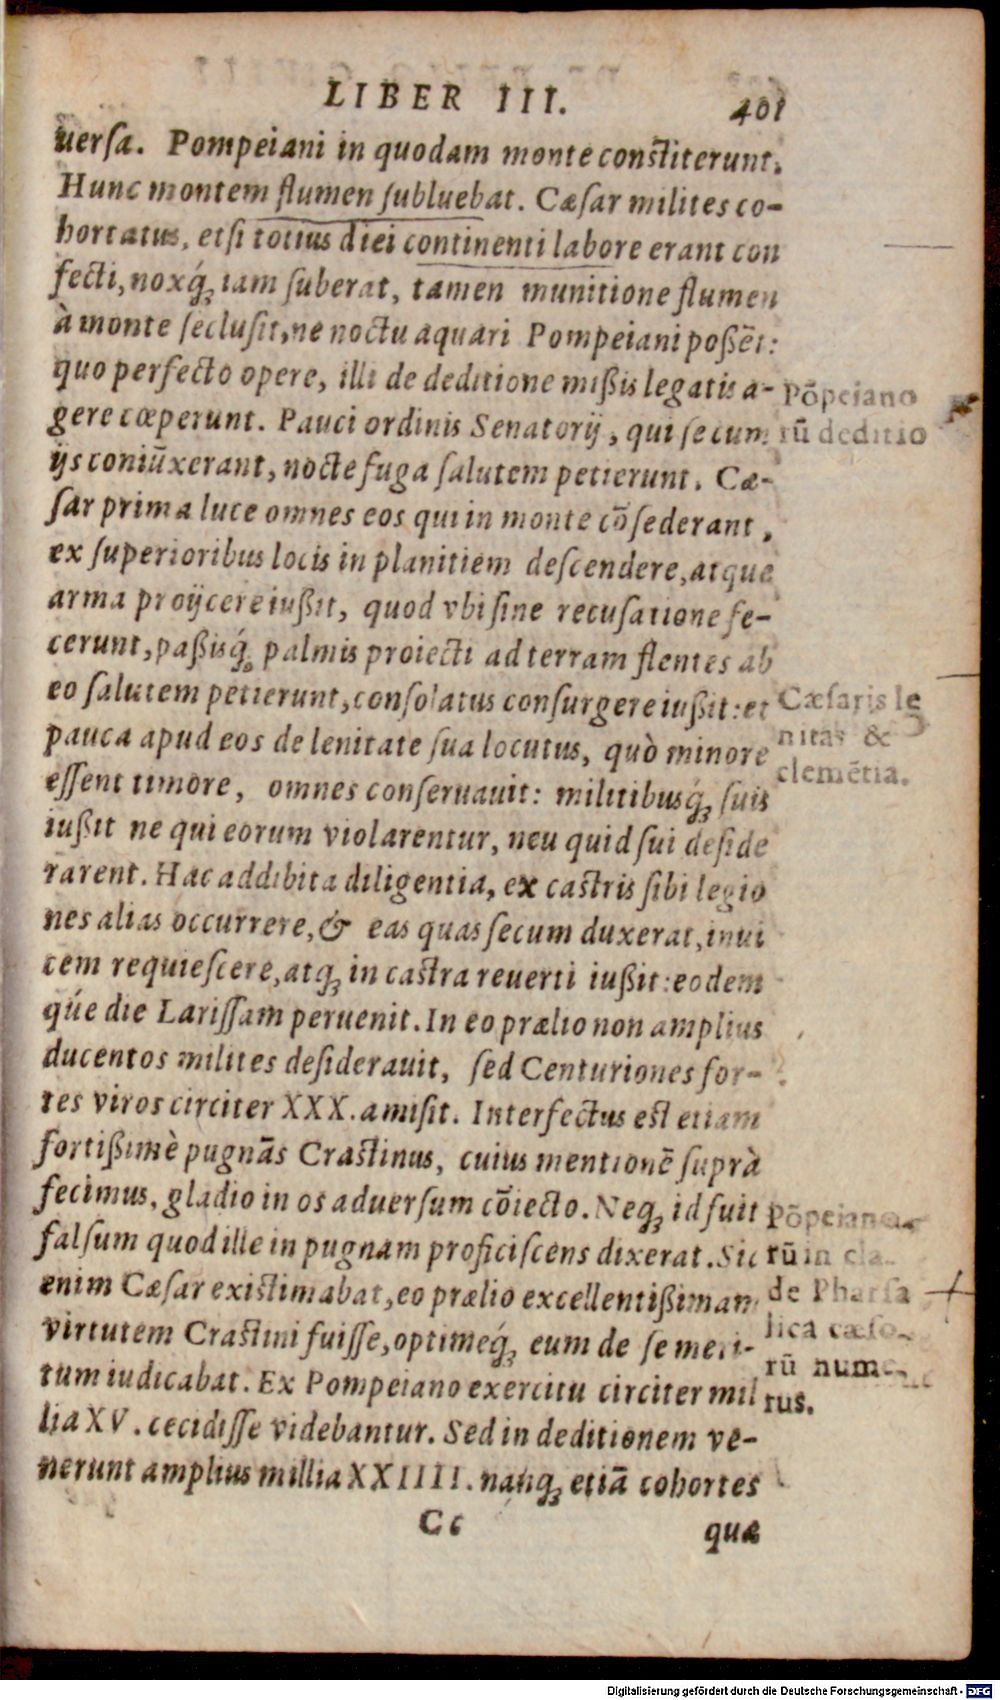 LIBER III. 401
uersa. Pompeiani in quodam monte constiterunt.
Hunc montem flumen subluebat. Cæsar milites co-
hortatus, etsi totius diei continenti labore erant con
fecti, noxq́ꝫ iam suberat, tamen munitione flumen
à monte seclusit, ne noctu aquari Pompeiani poßẽt:
quo perfecto opere, illi de deditione mißis legatis a-
gere cœperunt. Pauci ordinis Senatorij, qui se cum
ijs coniũxerant, nocte fuga salutem petierunt. Cæ-
sar prima luce omnes eos qui in monte cõsederant,
ex superioribus locis in planitiem descendere, atque
arma proijcere iußit, quod vbi sine recusatione fe-
cerunt, paßisq́ꝫ palmis proiecti ad terram flentes ab
eo salutem petierunt, consolatus consurgere iußit: et
pauca apud eos de lenitate sua locutus, quò minore
essent timore, omnes conseruauit: militibusq́ꝫ suis
iußit ne qui eorum violarentur, neu quid sui deside
rarent. Hac addibita diligentia, ex castris sibi legio
nes alias occurrere, & eas quas secum duxerat, inui
cem requiescere, atqꝫ in castra reuerti iußit: eodem
qúe die Larissam peruenit. In eo prælio non amplius
ducentos milites desiderauit, sed Centuriones for-
tes viros circiter XXX. amisit. Interfectus est etiam
fortißimè pugnãs Crastinus, cuius mentionẽ suprà
fecimus, gladio in os aduersum cõiecto. Neqꝫ id fuit
falsum quod ille in pugnam proficiscens dixerat. Sic
enim Cæsar existimabat, eo prælio excellentißimam
virtutem Crastini fuisse, optimeq́ꝫ eum de se meri-
tum iudicabat. Ex Pompeiano exercitu circiter mil
lia XV. cecidisse videbantur. Sed in deditionem ve-
nerunt amplius millia XXIIII. nanqꝫ etiã cohortes
Cc quæ
Põpeiano
rũ deditio
Cæsaris le
nitas &
clemẽtia.
Põpeiano-
rũ in cla-
de Pharsa
lica cæso-
rũ nume-
rus.
Digitalisierung gefördert durch die Deutsche Forschungsgemeinschaft - DFG